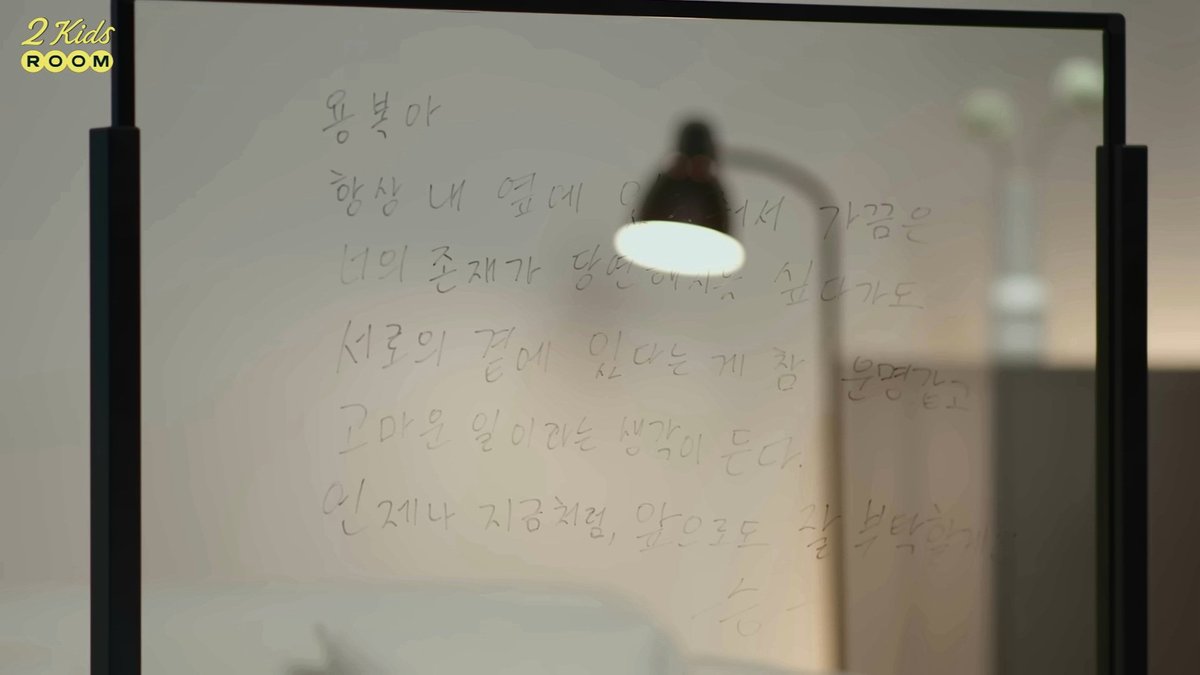 2 Kids
ROOM
용복아
항상 내 옆에 가끔은
너의 존재가 당연해지는 싶다가도
서로의 곁에 있다는 게 참 운명같고
고마운 일이라는 생각이 든다.
언제나 지금처럼, 앞으로도 잘 부탁할게